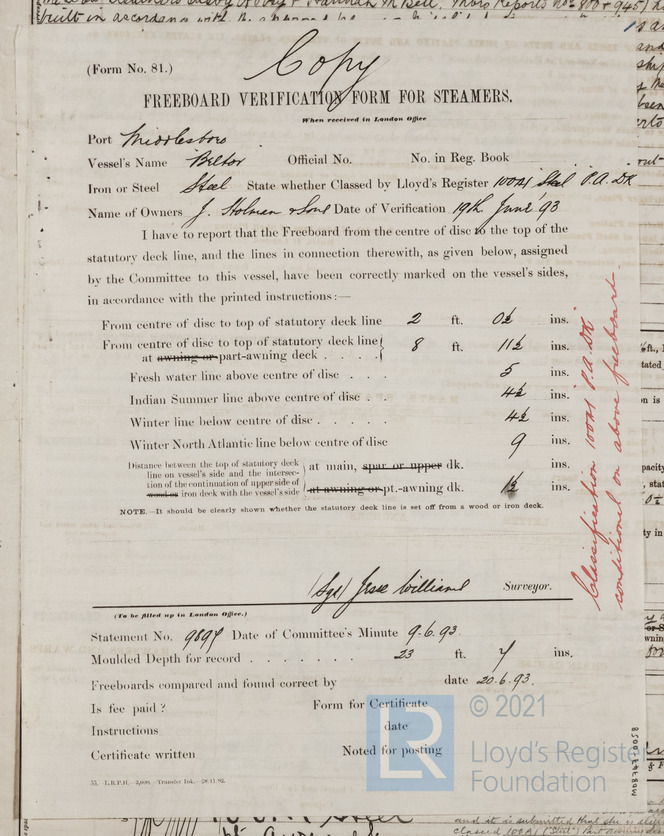 Copy
(Form No. 81.)
FREEBOARD VERIFICATION FORM FOR STEAMERS.
When received in London Office
Port Middlesboro
Vessel's Name Beltor Official No. No. in Reg. Book
Iron or Steel Steel State whether Classed by Lloyd's Register 100A1 Steel P.A. DK
Name of Owners J. Holman & Sons Date of Verification 19th June '93
I have to report that the Freeboard from the centre of disc to the top of the
statutory deck line, and the lines in connection therewith, as given below, assigned
by the Committee to this vessel, have been correctly marked on the vessel's sides,
in accordance with the printed instructions:—
From centre of disc to top of statutory deck line 2 ft. 0½ ins.
From centre of disc to top of statutory deck line
at awning or part-awning deck . . . . 8 ft. 11½ ins.
Fresh water line above centre of disc . . . 5 ins.
Indian Summer line above centre of disc . . 4½ ins.
Winter line below centre of disc . . . . . 4½ ins.
Winter North Atlantic line below centre of disc 9 ins.
Distance between the top of statutory deck
line on vessel's side and the intersec-
tion of the continuation of upper side of
wood or iron deck with the vessel's side
at main, spar or upper dk. ins.
at awning or pt.-awning dk. 1½ ins.
NOTE.—It should be clearly shown whether the statutory deck line is set off from a wood or iron deck.
Classification 100A1 P.A. DK
conditional on above freeboard.
(Sgd) Jesse Williams Surveyor.
(To be filled up in London Office.)
Statement No. 9897 Date of Committee's Minute 9.6.93.
Moulded Depth for record . . . . . . . 23 ft. 7 ins.
Freeboards compared and found correct by date 20.6.93.
Is fee paid ? Form for Certificate
Instructions date
Certificate written Noted for posting
55. L.R.P.H. 2,000. Transfer Ink. 28.11.92.
LR
© 2021
Lloyd's Registe
Foundation
WDB747-0058
and it is submitted that she is